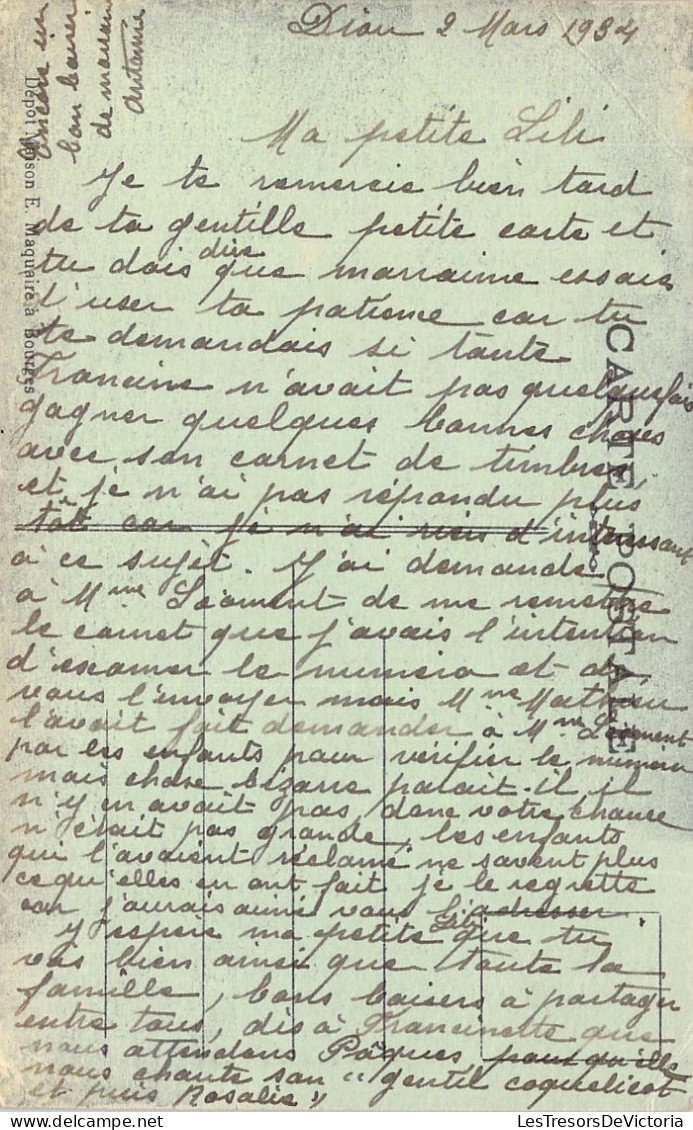 Dion 2 Mars 1934
Ma petite Lili
Je te remercie bien tard
de ta gentille petite carte et
tu dois dire que marraine essaie
d'user ta patience car tu
te demandais si tante
Francine n'avait pas quelquefois
gagner quelques bonnes choses
avec son carnet de timbres,
et je n'ai pas répondu plus
tôt car je n'ai rien d'intéressant
à ce sujet. J'ai demandé
à Mme Léoment de me remettre
le carnet que j'avais l'intention
d'examer le numéro et de
vous l'envoyer mais Mme Mathieu
l'avait fait demander à Mme Léoment
par les enfants pour vérifier le numéro
mais chose bizarre parait-il il
n'y en avait pas, donc votre chance
n'était pas grande, les enfants
qui l'avaient réclamé ne savent plus
ce qu'elles en ont fait je le regrette
car j'aurais aimé vous l'adresser.
J'espère ma petite Lili que tu
vas bien ainsi que toute la
famille, bons baisers à partager
entre tous, dis à Francinette que
nous attendons Pâques, pour qu'elle
nous chante son "gentil coquelicot
et puis Rosalie"
encore un
bon baiser
de marraine
Antoine
CARTE POSTALE
Dépôt Maison E. Maquaire à Bourges
LesTresorsDeVictoria